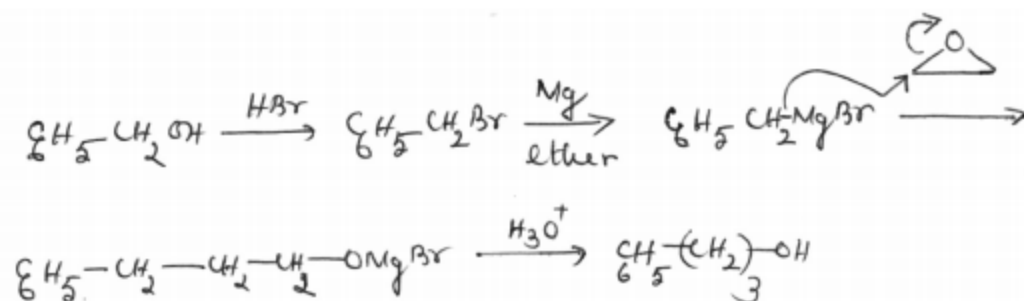 C₆H₅-CH₂OH HBr→ C₆H₅CH₂Br Mg→ ether C₆H₅CH₂MgBr O →
C₆H₅-CH₂-CH₂-CH₂-OMgBr H₃O⁺→ C₆H₅-(CH₂)₃-OH